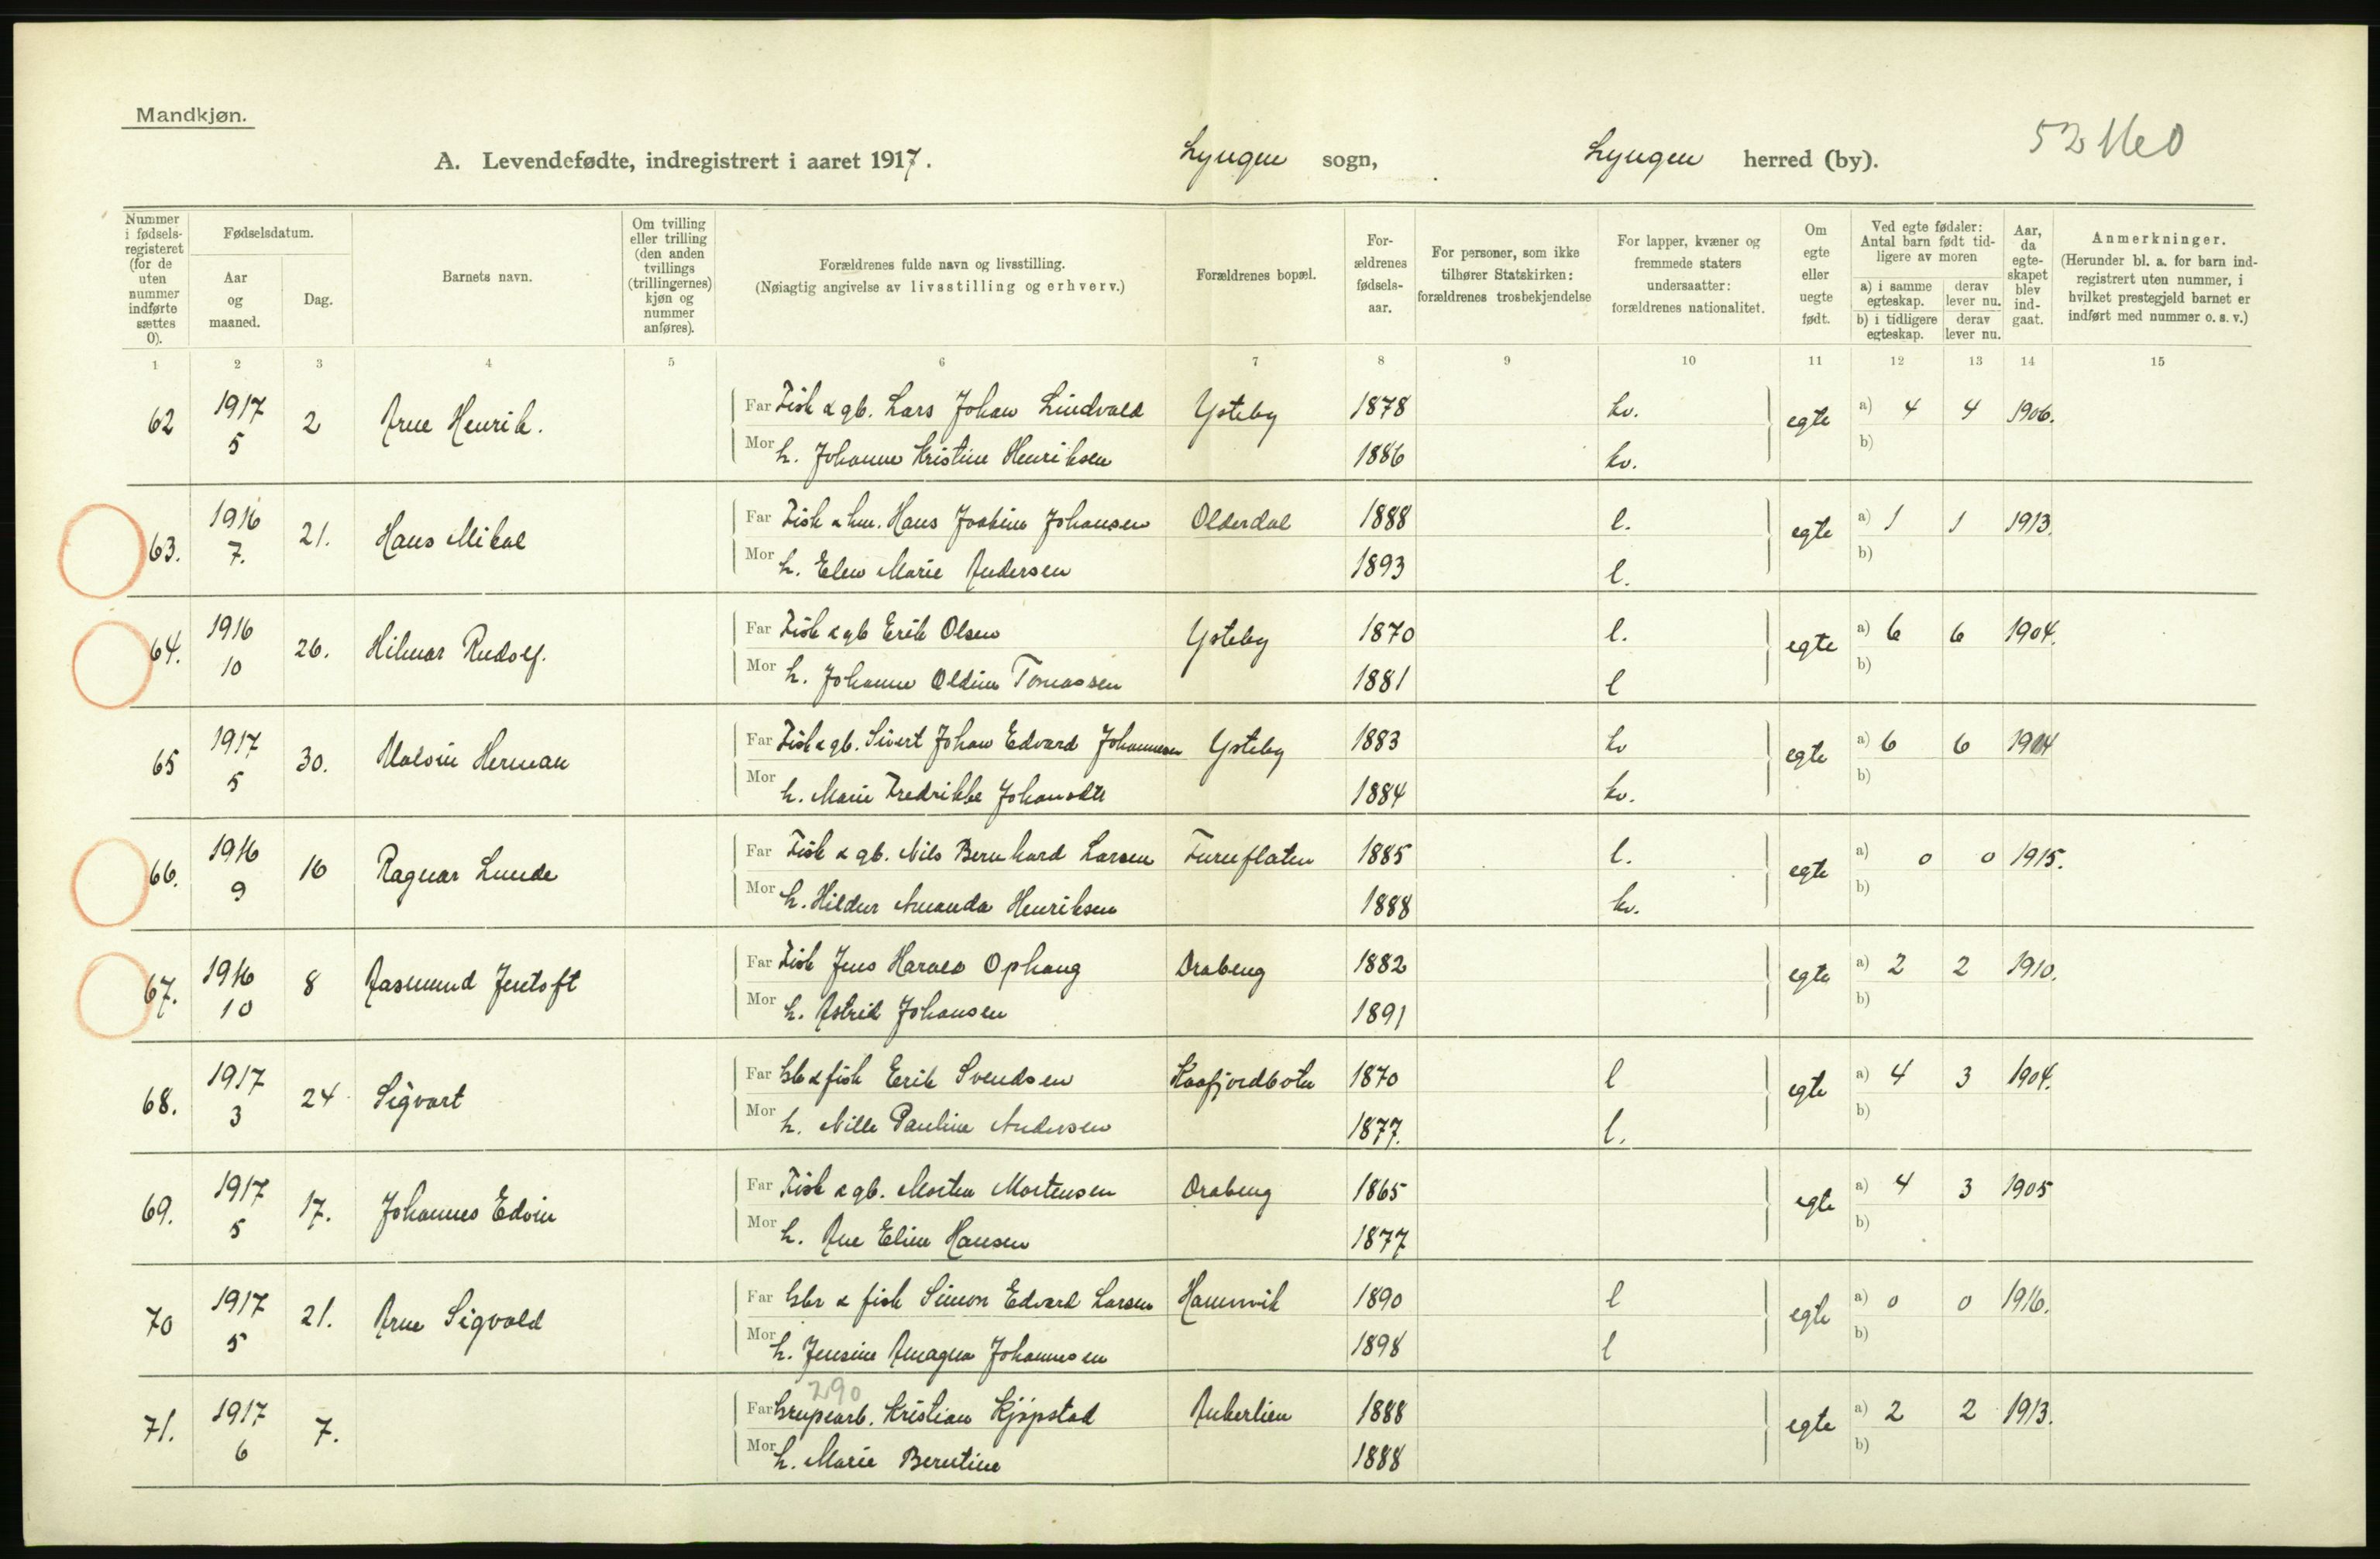 Mandkjøn.
A. Levendefødte, indregistrert i aaret 1917. Lyngen sogn, Lyngen herred (by).
Nummer i fødsels-registeret (for de uten nummer indførte sættes 0).
Fødselsdatum.
Aar og maaned.
Dag.
Barnets navn.
Om tvilling eller trilling (den anden tvillings (trillingernes) kjøn og nummer anføres).
Forældrenes fulde navn og livsstilling.
(Nøiagtig angivelse av livsstilling og erhverv.)
Forældrenes bopæl.
For-ældrenes fødsels-aar.
For personer, som ikke tilhører Statskirken: forældrenes trosbekjendelse
For lapper, kvæner og fremmede staters undersaatter: forældrenes nationalitet.
Om egte eller uegte født.
Ved egte fødsler: Antal barn født tid-ligere av moren
a) i samme egteskap. derav lever nu.
b) i tidligere egteskap. derav lever nu.
Aar, da egte-skapet blev ind-gaat.
Anmerkninger.
(Herunder bl. a. for barn ind-registrert uten nummer, i hvilket prestegjeld barnet er indført med nummer o. s. v.)
1 2 3 4 5 6 7 8 9 10 11 12 13 14 15
62 1917 5 2 Arne Henrik. Far Fisk & gb. Lars Johan Lindvald Ysteby 1878 kv. egte a) 4 4 1906.
Mor h. Johanne Kristine Henriksen 1886 kv. b)
63. 1916 7. 21. Hans Mikal Far Fisk & hm. Hans Joakim Johansen Olderdal 1888 l. egte a) 1 1 1913.
Mor h. Elen Marie Andersen 1893 l. b)
64. 1916 10 26. Hilmar Rudolf. Far Fisk & gb Erik Olsen Ysteby 1870 l. egte a) 6 6 1904.
Mor h. Johanne Oldine Tomassen 1881 l b)
65 1917 5 30. Malvin Herman Far Fisk & gb. Sivert Johan Edvard Johannesen Ysteby 1883 kv egte a) 6 6 1904
Mor h. Marie Fredrikke Johansdtr 1884 kv. b)
66. 1916 9 16 Ragnar Lunde Far Fisk & gb. Nils Bernhard Larsen Furuflaten 1885 l. egte a) 0 0 1915.
Mor h. Hildur Amanda Henriksen 1888 kv. b)
67. 1916 10 8 Aasmund Jentoft Far Fisk Jens Harald Ophaug Drabeng 1882 egte a) 2 2 1910.
Mor h. Astrid Johansen 1891 b)
68. 1917 3 24 Sigvart Far gb & fisk Erik Svendsen Kaafjordbotn 1870 l egte a) 4 3 1904.
Mor h. Nille Pauline Andersen 1877. l. b)
69. 1917 5 17. Johannes Edvin Far Fisk & gb. Morten Mortensen Drabeng 1865 egte a) 4 3 1905
Mor h. Ane Eline Hansen 1877 b)
70 1917 5 21. Arne Sigvald Far gbr & fisk Simon Edvard Larsen Hamnvik 1890 l egte a) 0 0 1916.
Mor h. Jensine Amagna Johannesen 1898 l b)
290
71. 1917 6 7. Far Grupearb. Kristian Kjøpstad Ankerlien 1888 egte a) 2 2 1913.
Mor h. Marie Berntine 1888 b)